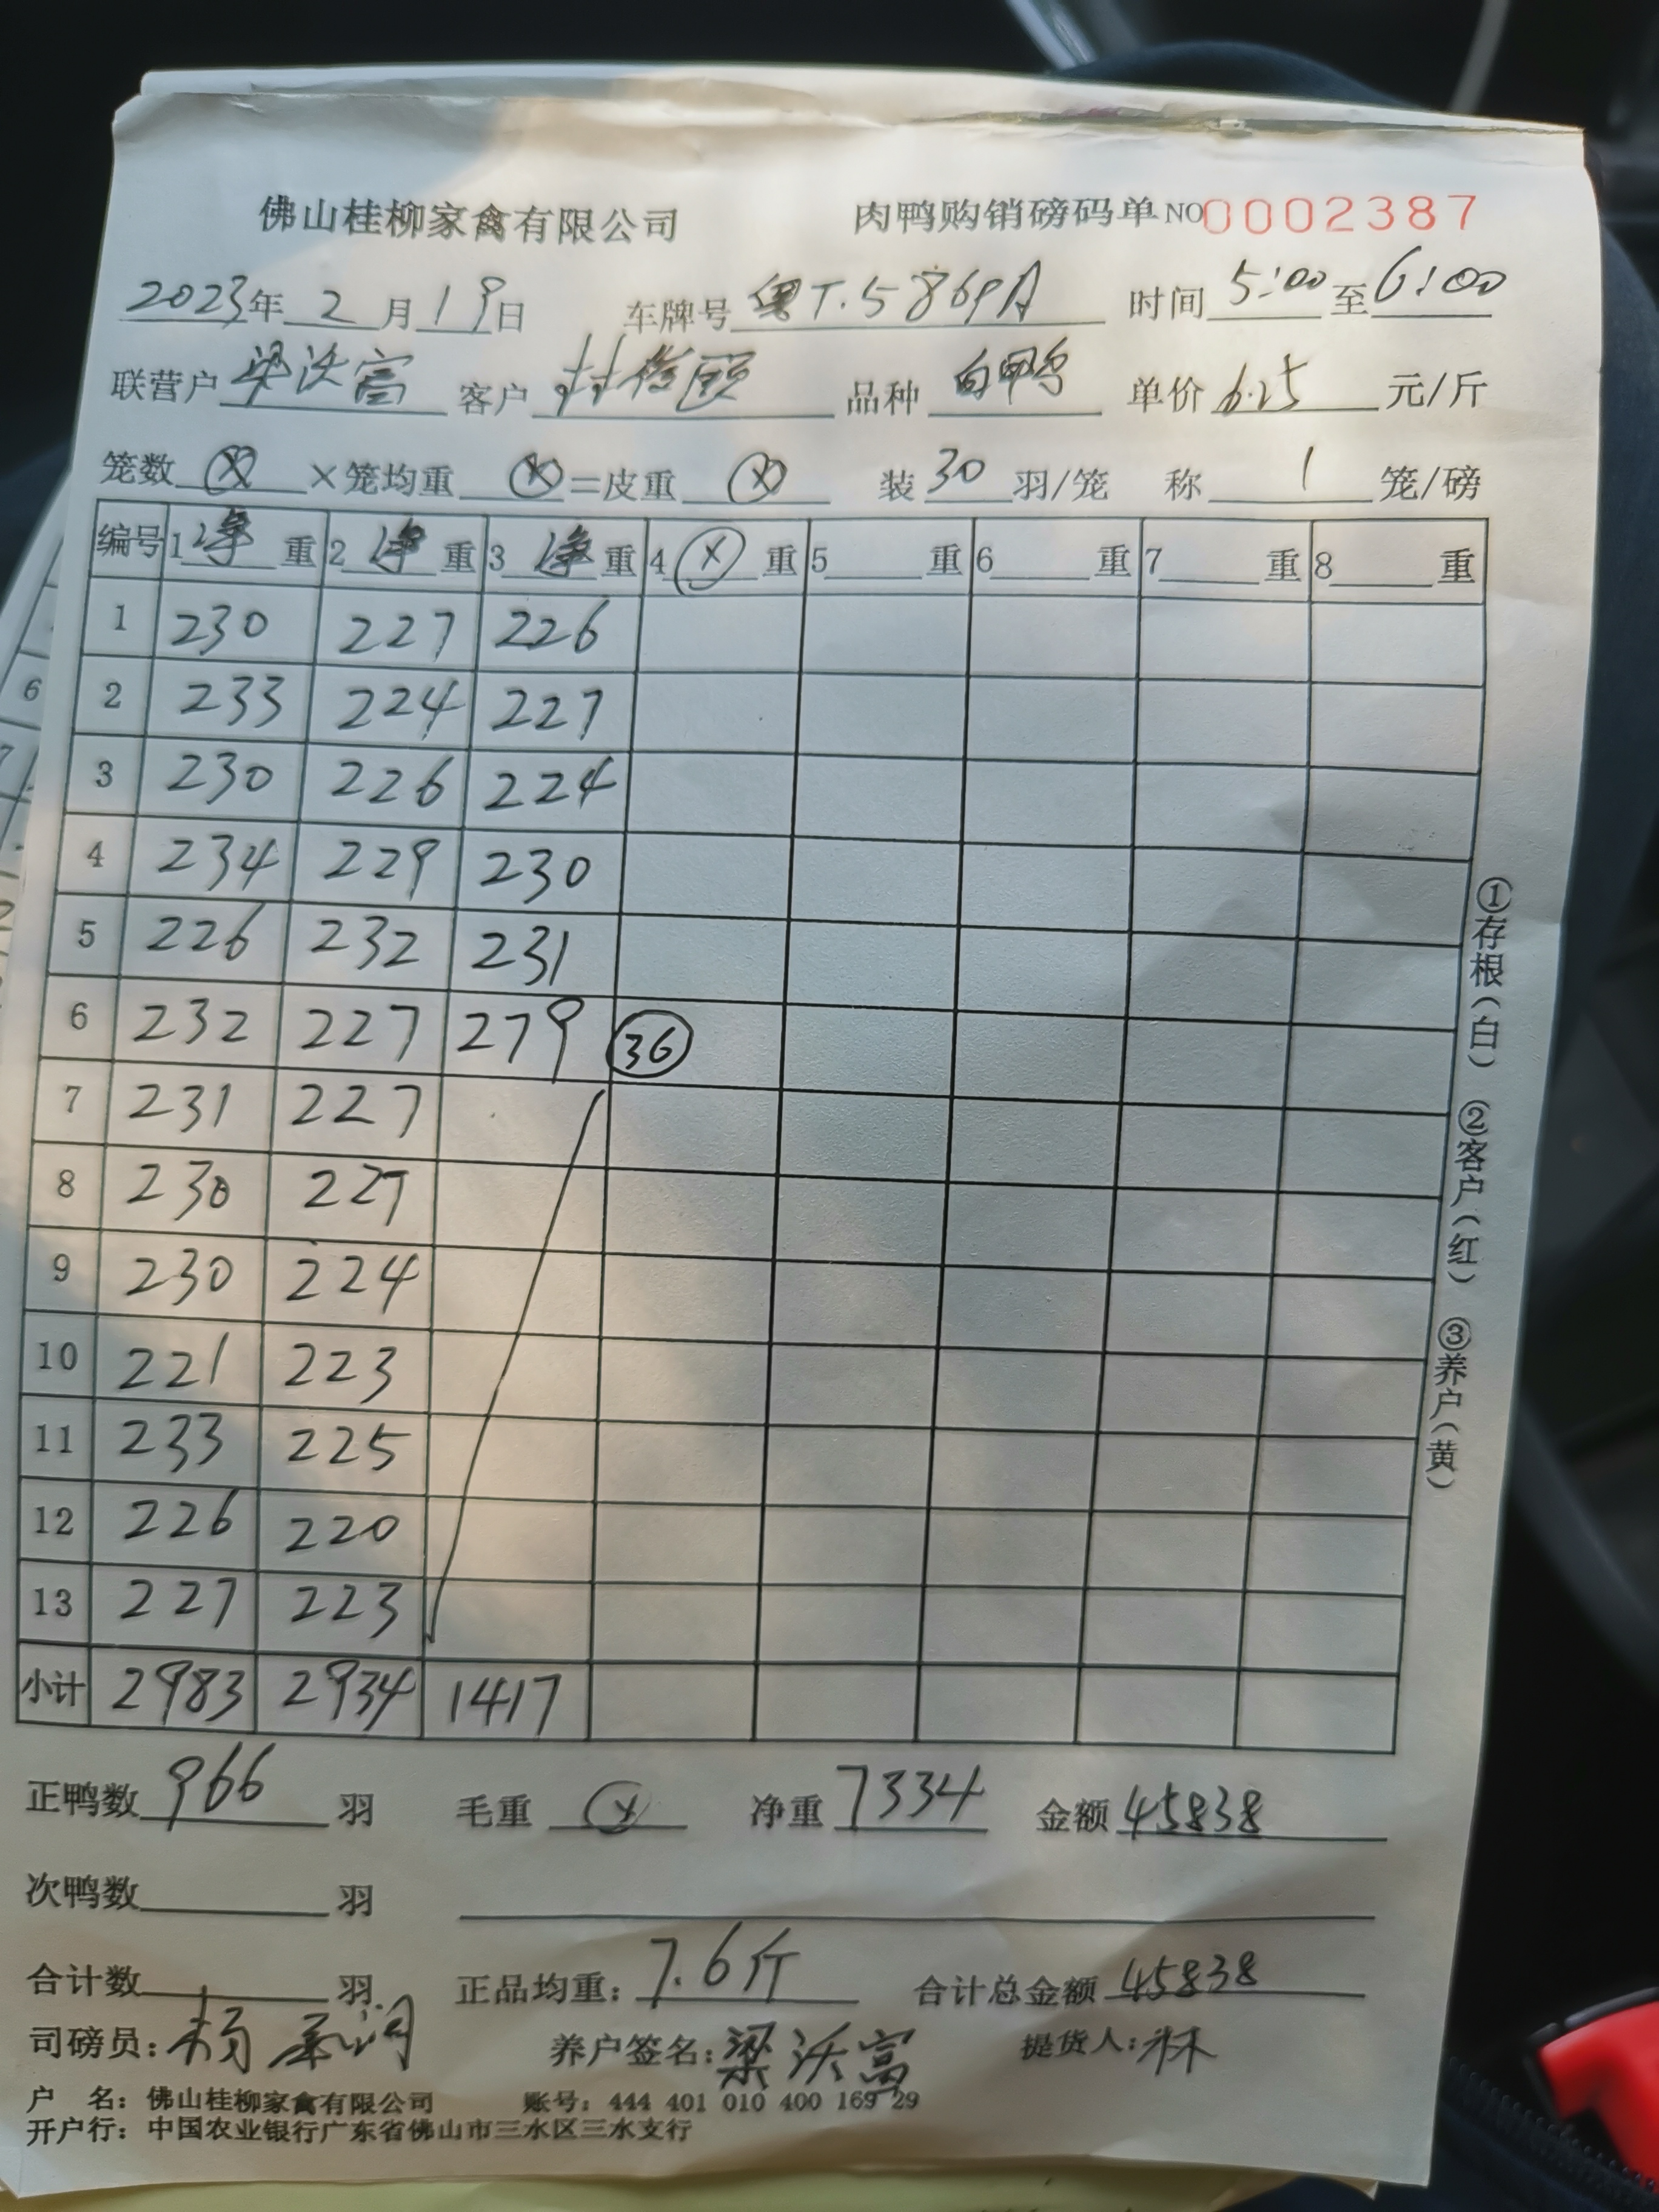 佛山桂柳家禽有限公司 肉鸭购销磅码单 NO 0002387
2023年 2 月 19 日 车牌号 粤T.5869A 时间 5:00 至 6:00
联营户 梁沃富 客户 品种 白鸭 单价 6.25 元/斤
笼数 ⓧ ×笼均重 ⓧ =皮重 ⓧ 装 30 羽/笼 称 1 笼/磅
编号 1 净 重 2 净 重 3 净 重 4 ⓧ 重 5 重 6 重 7 重 8 重
1 230 227 226
2 233 224 227
3 230 226 224
4 234 229 230
5 226 232 231
6 232 227 279 ㊱
7 231 227
8 230 227
9 230 224
10 221 223
11 233 225
12 226 220
13 227 223
小计 2983 2934 1417
正鸭数 966 羽 毛重 ⓧ 净重 7334 金额 45838
次鸭数 羽
合计数 羽 正品均重: 7.6斤 合计总金额 45838
司磅员: 杨 养户签名: 梁沃富 提货人: 林
户 名: 佛山桂柳家禽有限公司 账号: 444 401 010 400 169 29
开户行: 中国农业银行广东省佛山市三水区三水支行
①存根(白) ②客户(红) ③养户(黄)